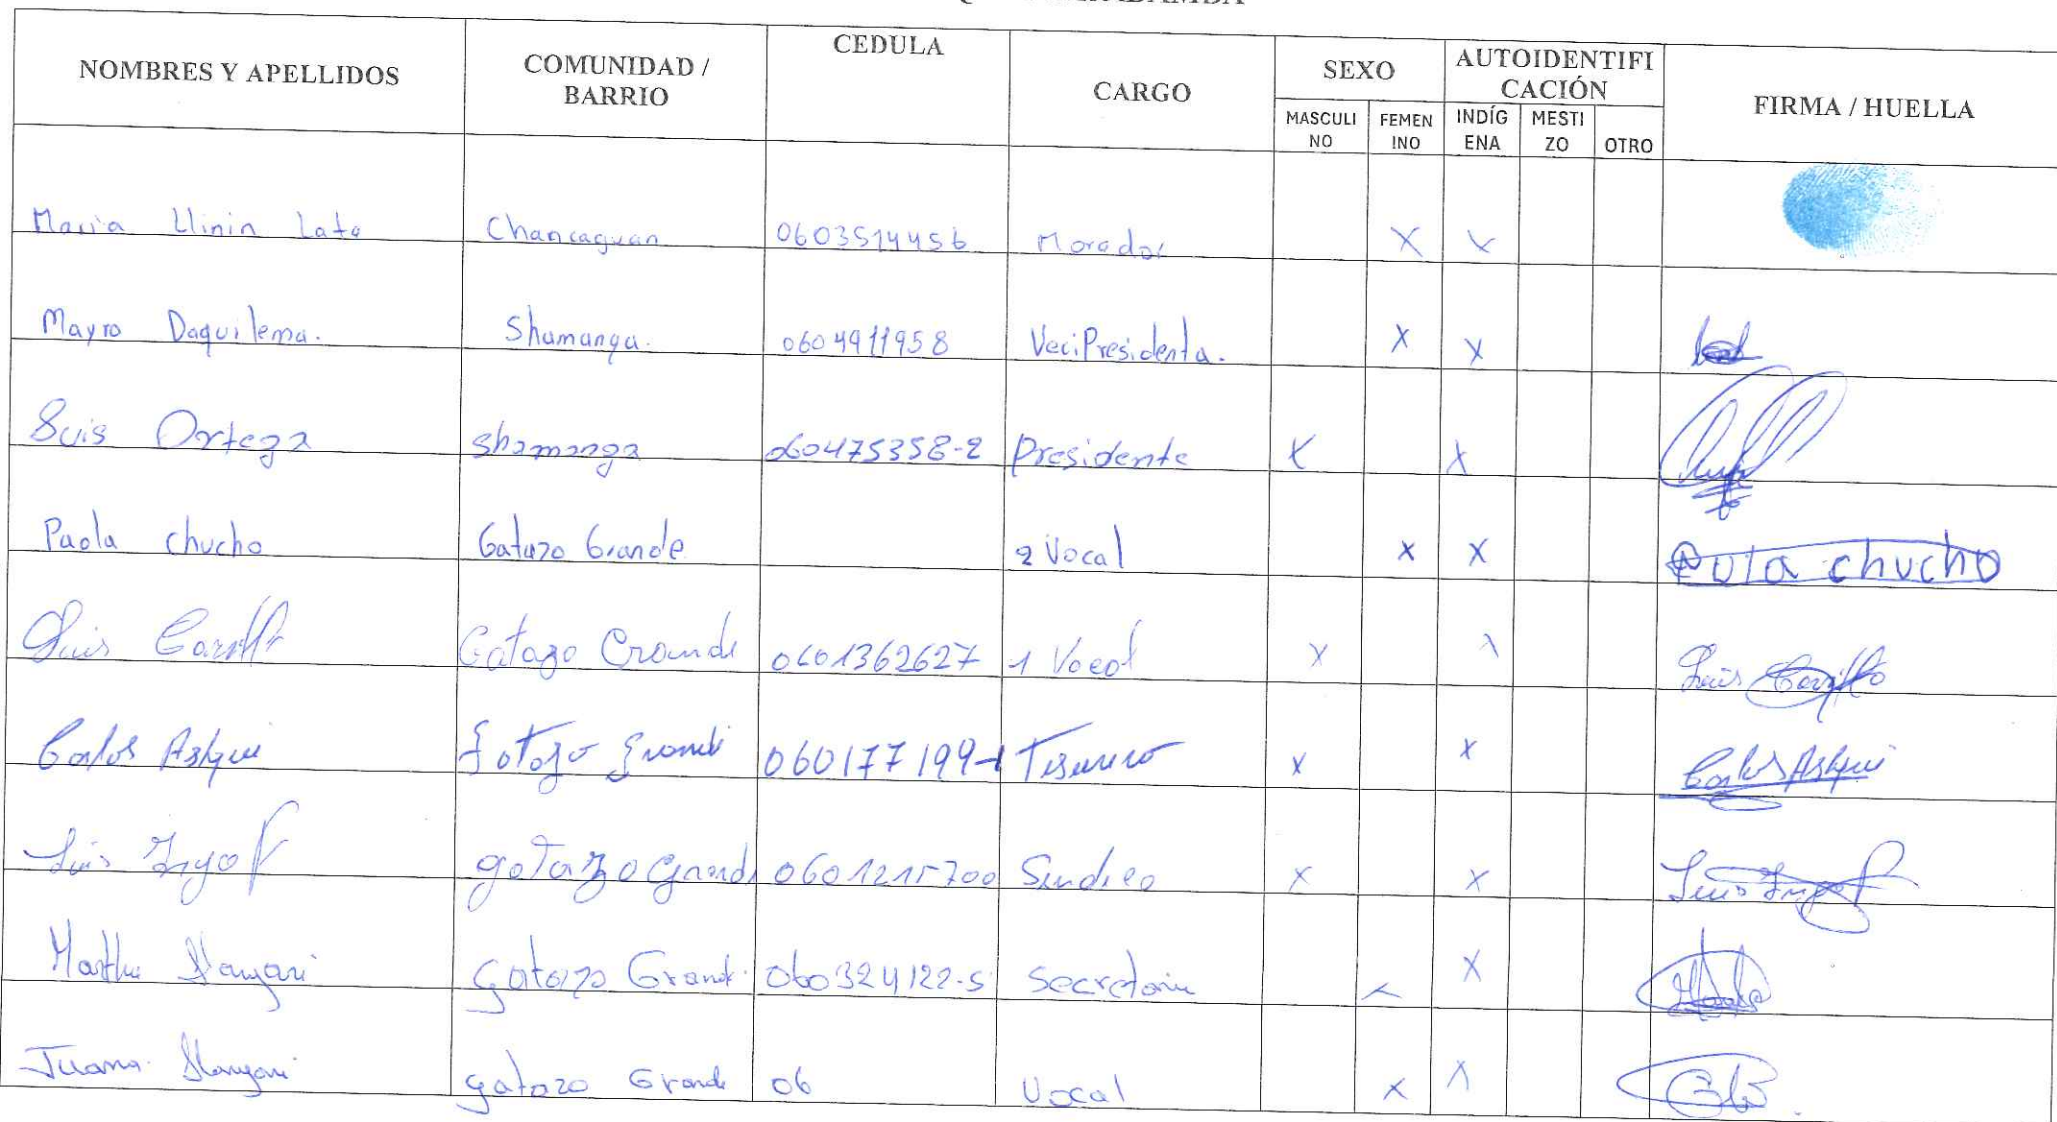 NOMBRES Y APELLIDOS COMUNIDAD / BARRIO CEDULA CARGO SEXO AUTOIDENTIFI CACIÓN FIRMA / HUELLA
MASCULI NO FEMEN INO INDÍG ENA MESTI ZO OTRO
Maria Llinin Lata Chancaguan 0603514456 Morador X X
Mayra Daquilema. Shamanga. 0604911958 VeciPresidenta. X X
Luis Ortega Shamanga 060475358-2 Presidente X X
Paola chucho Gatazo Grande 2 Vocal X X Paola chucho
Luis Carillo Gatazo Grande 0601362627 1 Vocal X X Luis Carrillo
Carlos Ashqui Gatazo Grande 060177199-1 Tesurero X X Carlos Ashqui
Luis Gatazo Grande 0601215700 Sindico X X Luis
Martha Gatazo Grande 060324122-5 Secretaria X X
Juana Gatazo Grande 06 Vocal X X